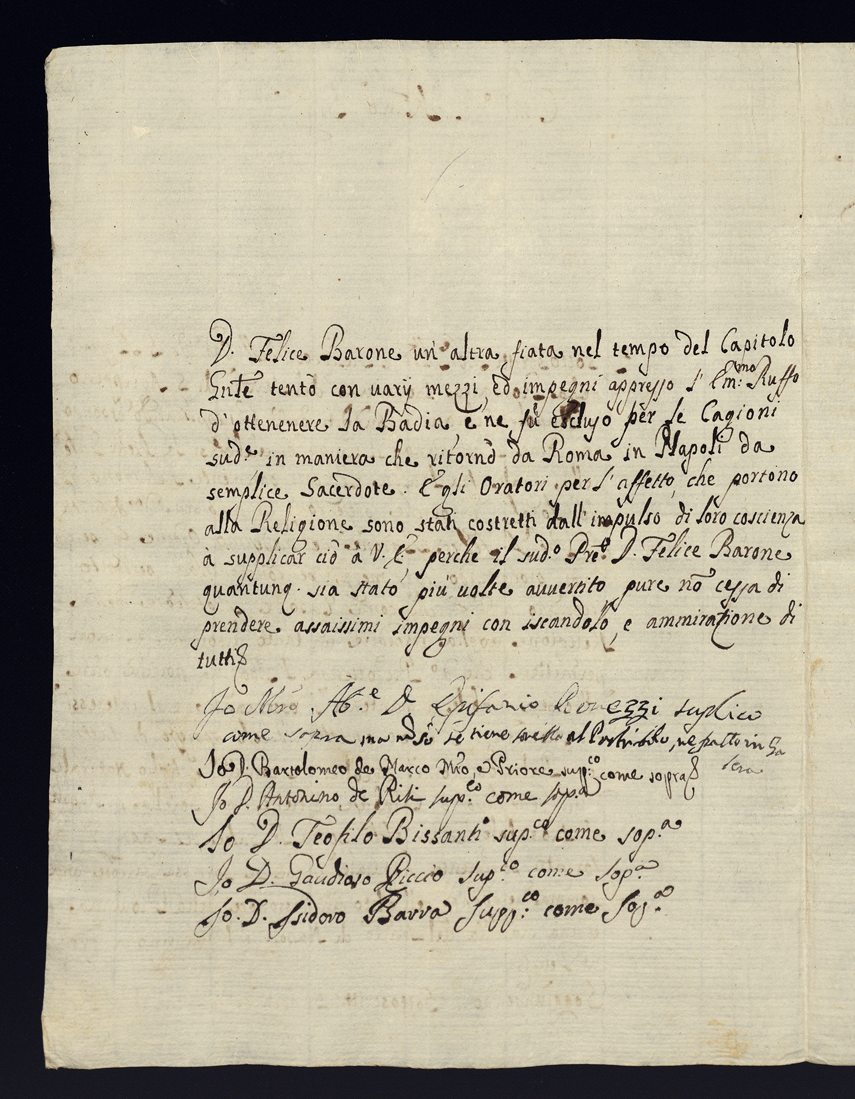 D. Felice Barone un'altra fiata nel tempo del Capitolo
Gn̄te tentò con varij mezzi, ed impegni appresso l'Em:mo Ruffo
d'ottenenere la Badia e ne fù escluso per le Cagioni
sud.e in maniera che ritornò da Roma in Napoli da
semplice Sacerdote. E gli Oratori per l'affetto, che portono
alla Religione sono stati costretti dall'impulso di loro coscienza
à supplicar ciò à V.E. perche il sud.o Pre D. Felice Barone
quantunq. sia stato più volte avvertito pure nō cessa di
prendere assaissimi impegni con iscandolo, e ammirazione di
tutti
Jo Ab.e D. Epifanio suplico
come sopra ma se tiene al
Jo D. Bartolomeo de Marco Mr̄o, e Priore sup:co come sopra
Jo D. Antonino de Risi sup.co come sop.a
Jo D. Teofilo Bissanti sup.co come sop.a
Jo D. Gaudioso Riccio sup.co come sop.a
Jo. D. Isidoro Barra supp:co come sop.a